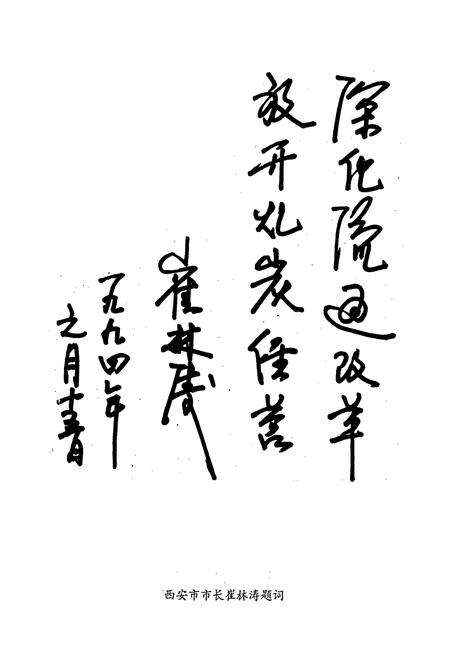 深化流通改革
放开煤炭经营
崔林涛
一九九四年
元月十五日
西安市市长崔林涛题词